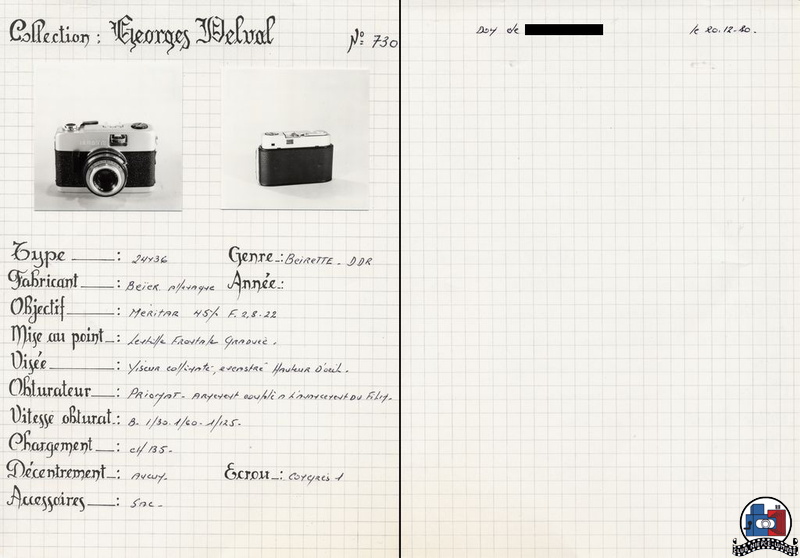 Collection : Georges Delval Nº 730
Type : 24x36 Genre : BeiRETTE - DDR
Fabricant : Beier Allemagne Année :
Objectif : MERITAR 45/ F. 2,8-22
Mise au point : Lentille Frontale Graduée.
Visée : Viseur collimaté, excentré Hauteur D'oeil.
Obturateur : PRIOMAT - ARMEMENT couplé à l'avancement du Film.
Vitesse obturat. : B- 1/30. 1/60 - 1/125-
Chargement : cl/135-
Décentrement : Aucun. Ecrou : Congrès 1
Accessoires : Sac -
Don de le 20.12.80.